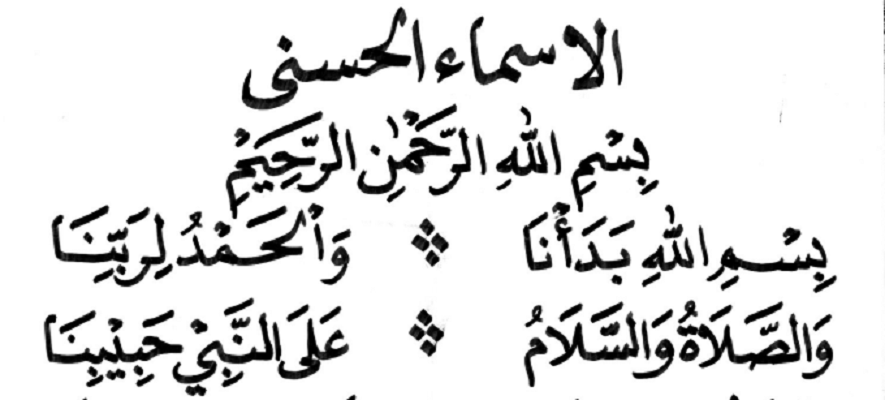 الاسماء الحسنى
بِسْمِ اللهِ الرَّحْمٰنِ الرَّحِيْمِ
بِسْمِ اللهِ بَدَأْنَا ❖ وَالْحَمْدُ لِرَبِّنَا
وَالصَّلَاةُ وَالسَّلَامُ ❖ عَلَى النَّبِيْ حَبِيْبِنَا